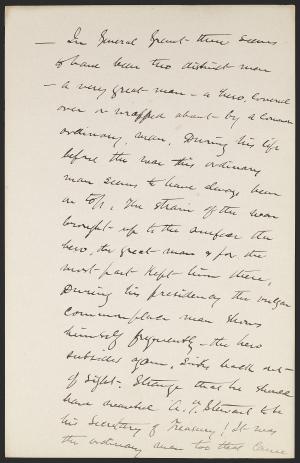 — In General Grant there seems
to have been two distinct men
— a very great man — a hero, covered
over or wrapped about — by a common
ordinary, man, During his life
before the war this ordinary
man seems to have always been
on top, The strain of the war
brought up to the surface the
hero, the great man & for the
most part kept him there,
During his presidency the vulgar
commonplace man shows
himself frequently — the hero
subsides again, sinks back out
of sight. Strange that he should
have A. T. Stewart to be
his Secretary of Treasury! It was
the ordinary man too that came